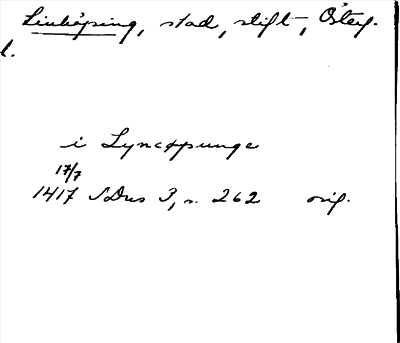 Linköping, stad, stift, Östg.
l.
i Lyncøpunge
17/7
1417 SDns 3, s. 262 orig.